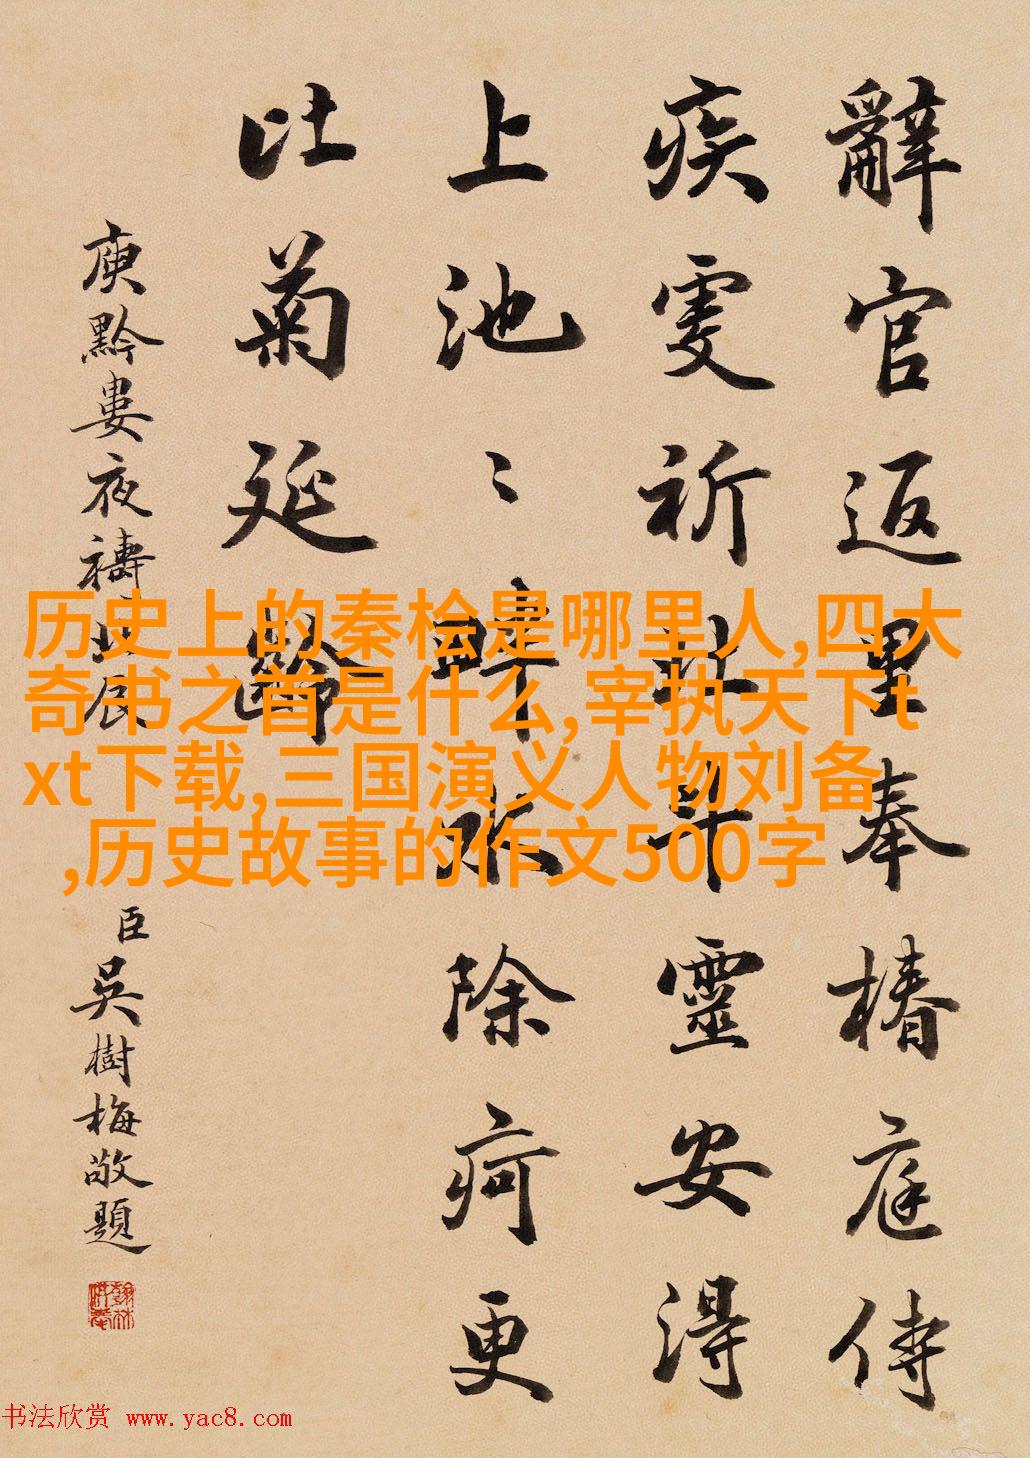 辭官返里奉椿庭侍
疾虔祈北斗靈安得
上池〻畔水除疴更
比菊延齡
庾黔婁夜禱北辰
臣吳樹梅敬題
历史上的秦桧是哪里人,四大
奇书之首是什么,宰执天下t
xt下载,三国演义人物刘备
,历史故事的作文500字
书法欣赏 www.yac8.com